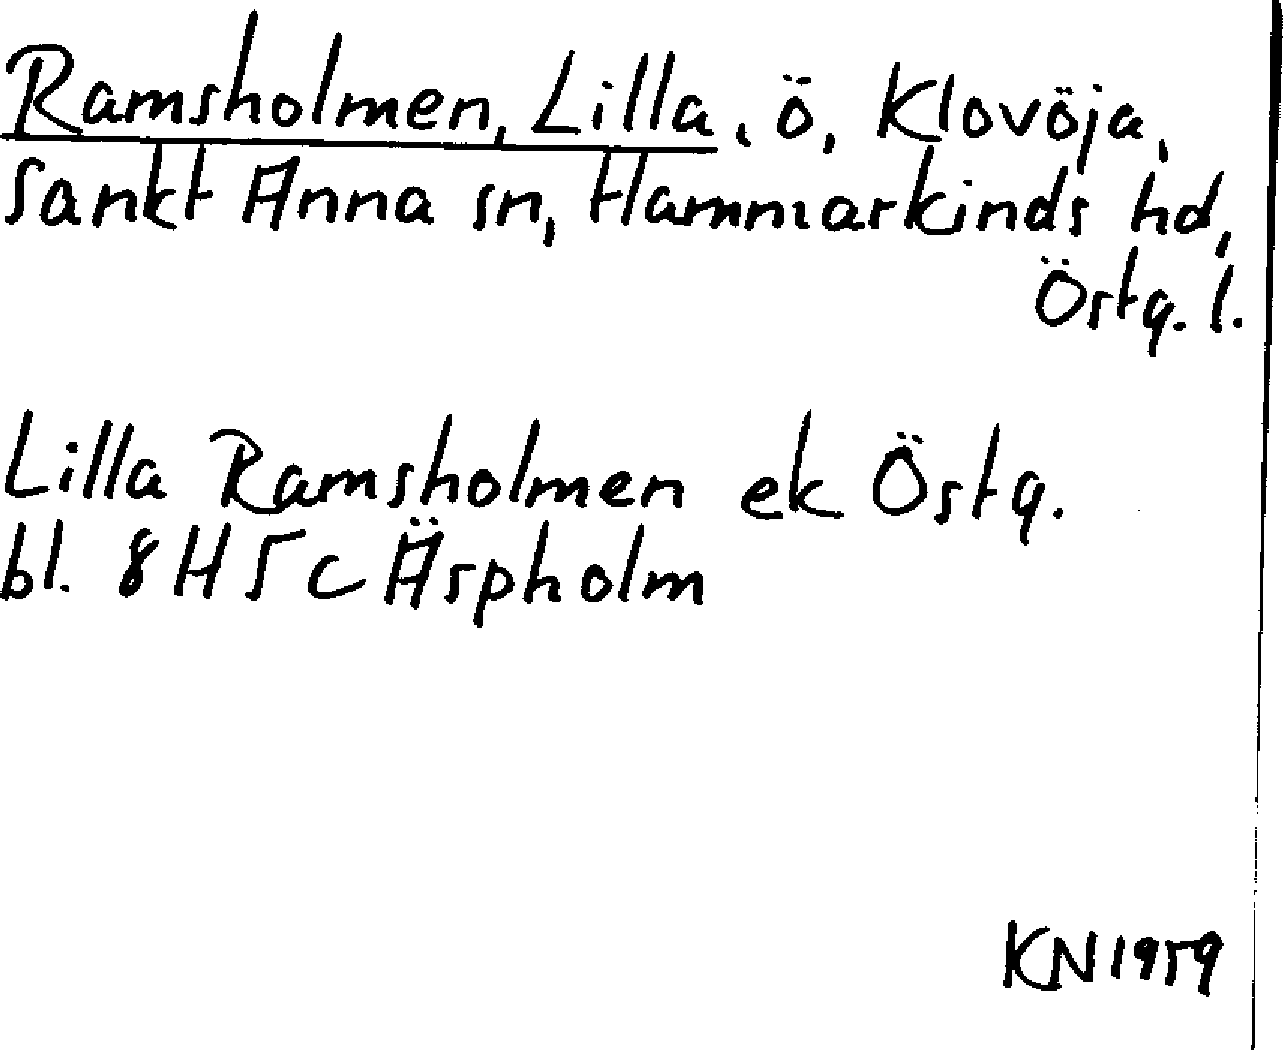 Ramsholmen, Lilla, ö, Klovöja,
Sankt Anna sn, Hammarkinds hd,
Östg. l.
Lilla Ramsholmen ek Östg.
bl. 8 H 5 c Äspholm
KN 1959